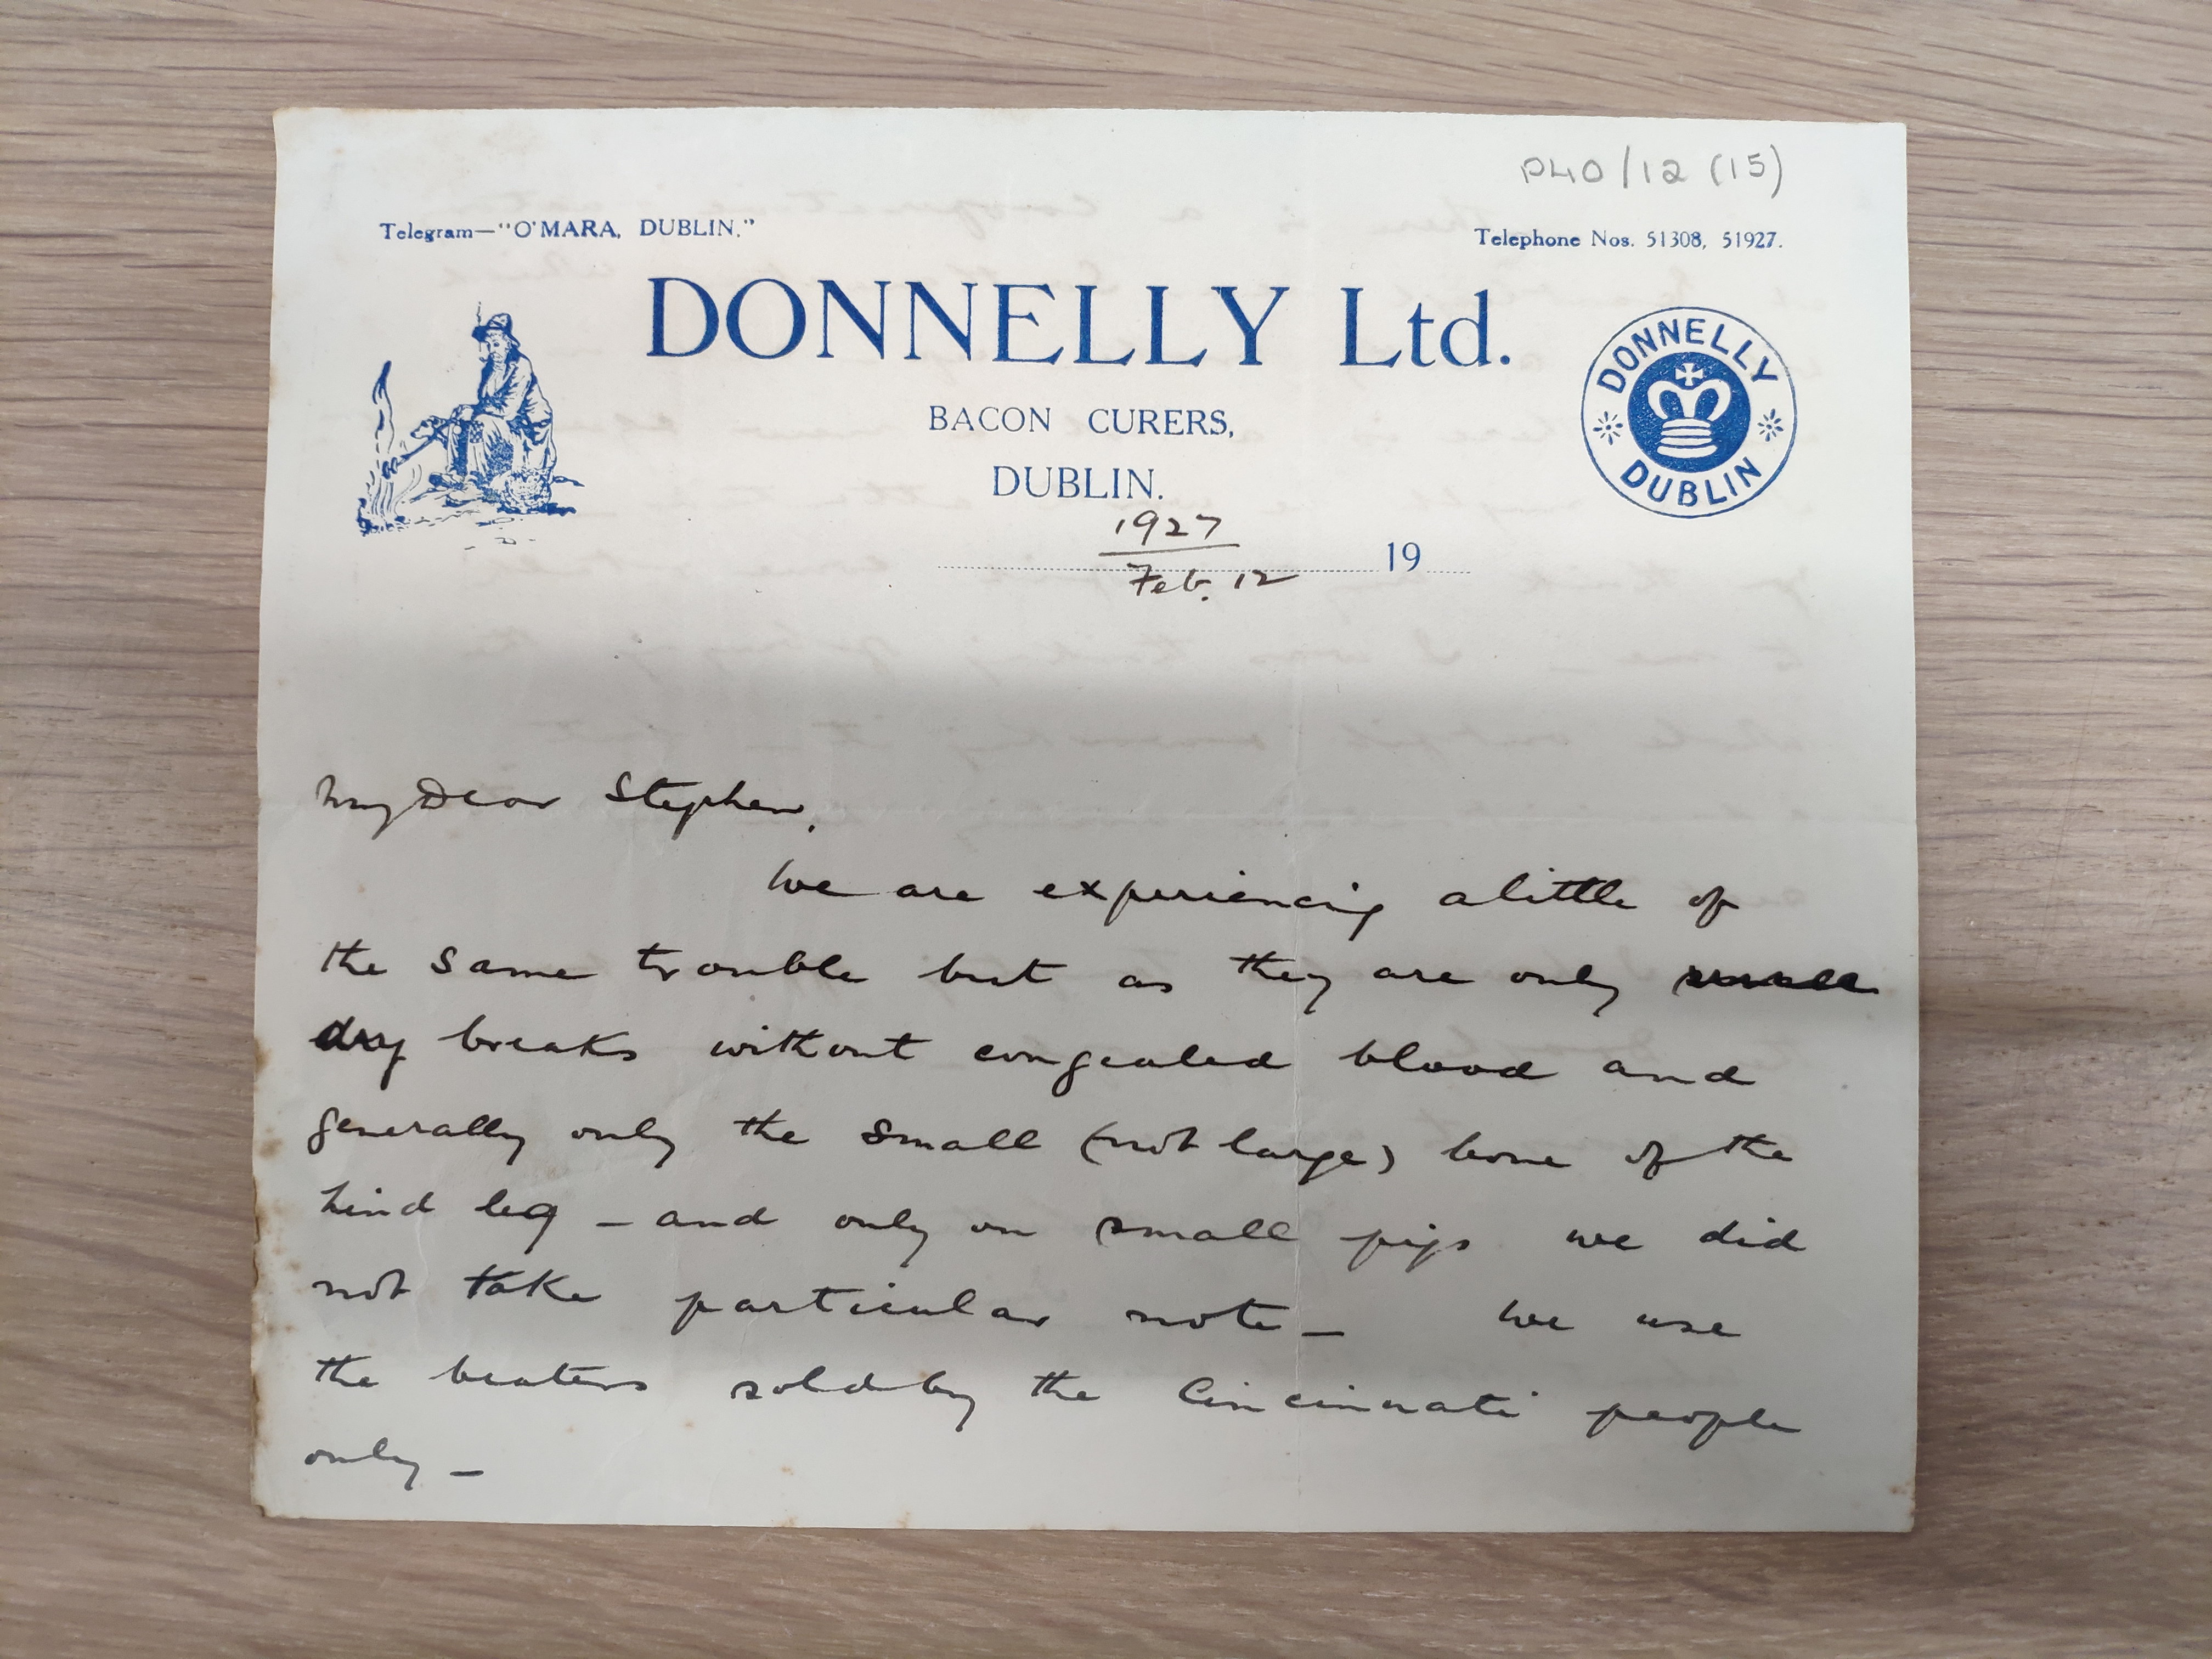 P40/12 (15)
Telegram—"O'MARA, DUBLIN."
Telephone Nos. 51308, 51927.
DONNELLY Ltd.
BACON CURERS,
DUBLIN.
DONNELLY
DUBLIN
1927
Feb. 12
19
My Dear Stephen,
We are experiencing a little of
the same trouble but as they are only
dry breaks without congealed blood and
generally only the small (not large) bone of the
hind leg – and only on small pigs we did
not take particular note – We use
the beaters sold by the Cincinnati people
only –